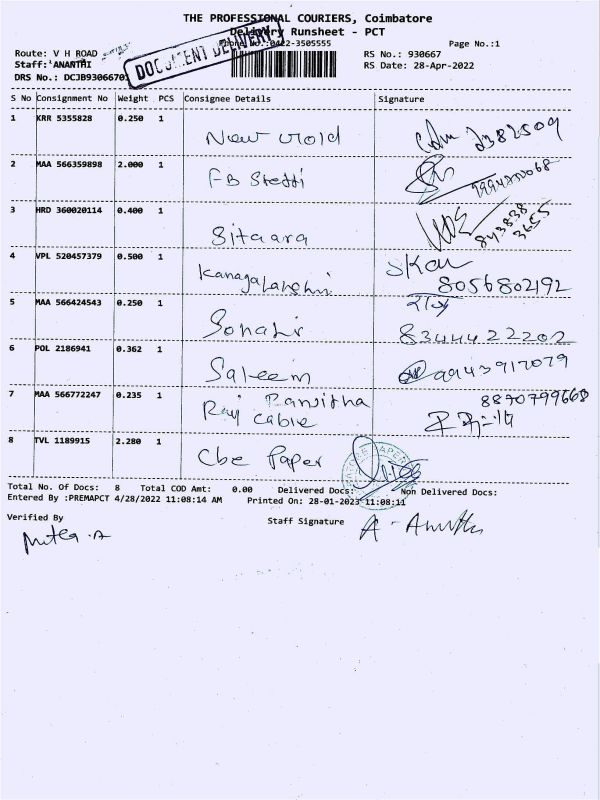 THE PROFESSIONAL COURIERS, Coimbatore
Delivery Runsheet - PCT
Phone No.:0422-3505555
Page No.:1
DOCUMENT DELIVERY
Route: V H ROAD
RS No.: 930667
Staff: ANANTHI
RS Date: 28-Apr-2022
DRS No.: DCJB930667
S No Consignment No Weight PCS Consignee Details Signature
1 KRR 5355828 0.250 1
New void 2382509
2 MAA 566359898 2.000 1
FB Steddi
3 HRD 360020114 0.400 1
Sitaara 843838
3655
4 VPL 520457379 0.500 1
Kanagalakshmi 8056802192
5 MAA 566424543 0.250 1
8344422202
6 POL 2186941 0.362 1
Saleem 9943917079
7 MAA 566772247 0.235 1
Raj Ranjitha 8870799668
Cable
8 TVL 1189915 2.280 1
Cbe Paper
Total No. Of Docs: 8 Total COD Amt: 0.00 Delivered Docs: Non Delivered Docs:
Entered By :PREMAPCT 4/28/2022 11:08:14 AM Printed On: 28-01-2023 11:08:11
Verified By Staff Signature